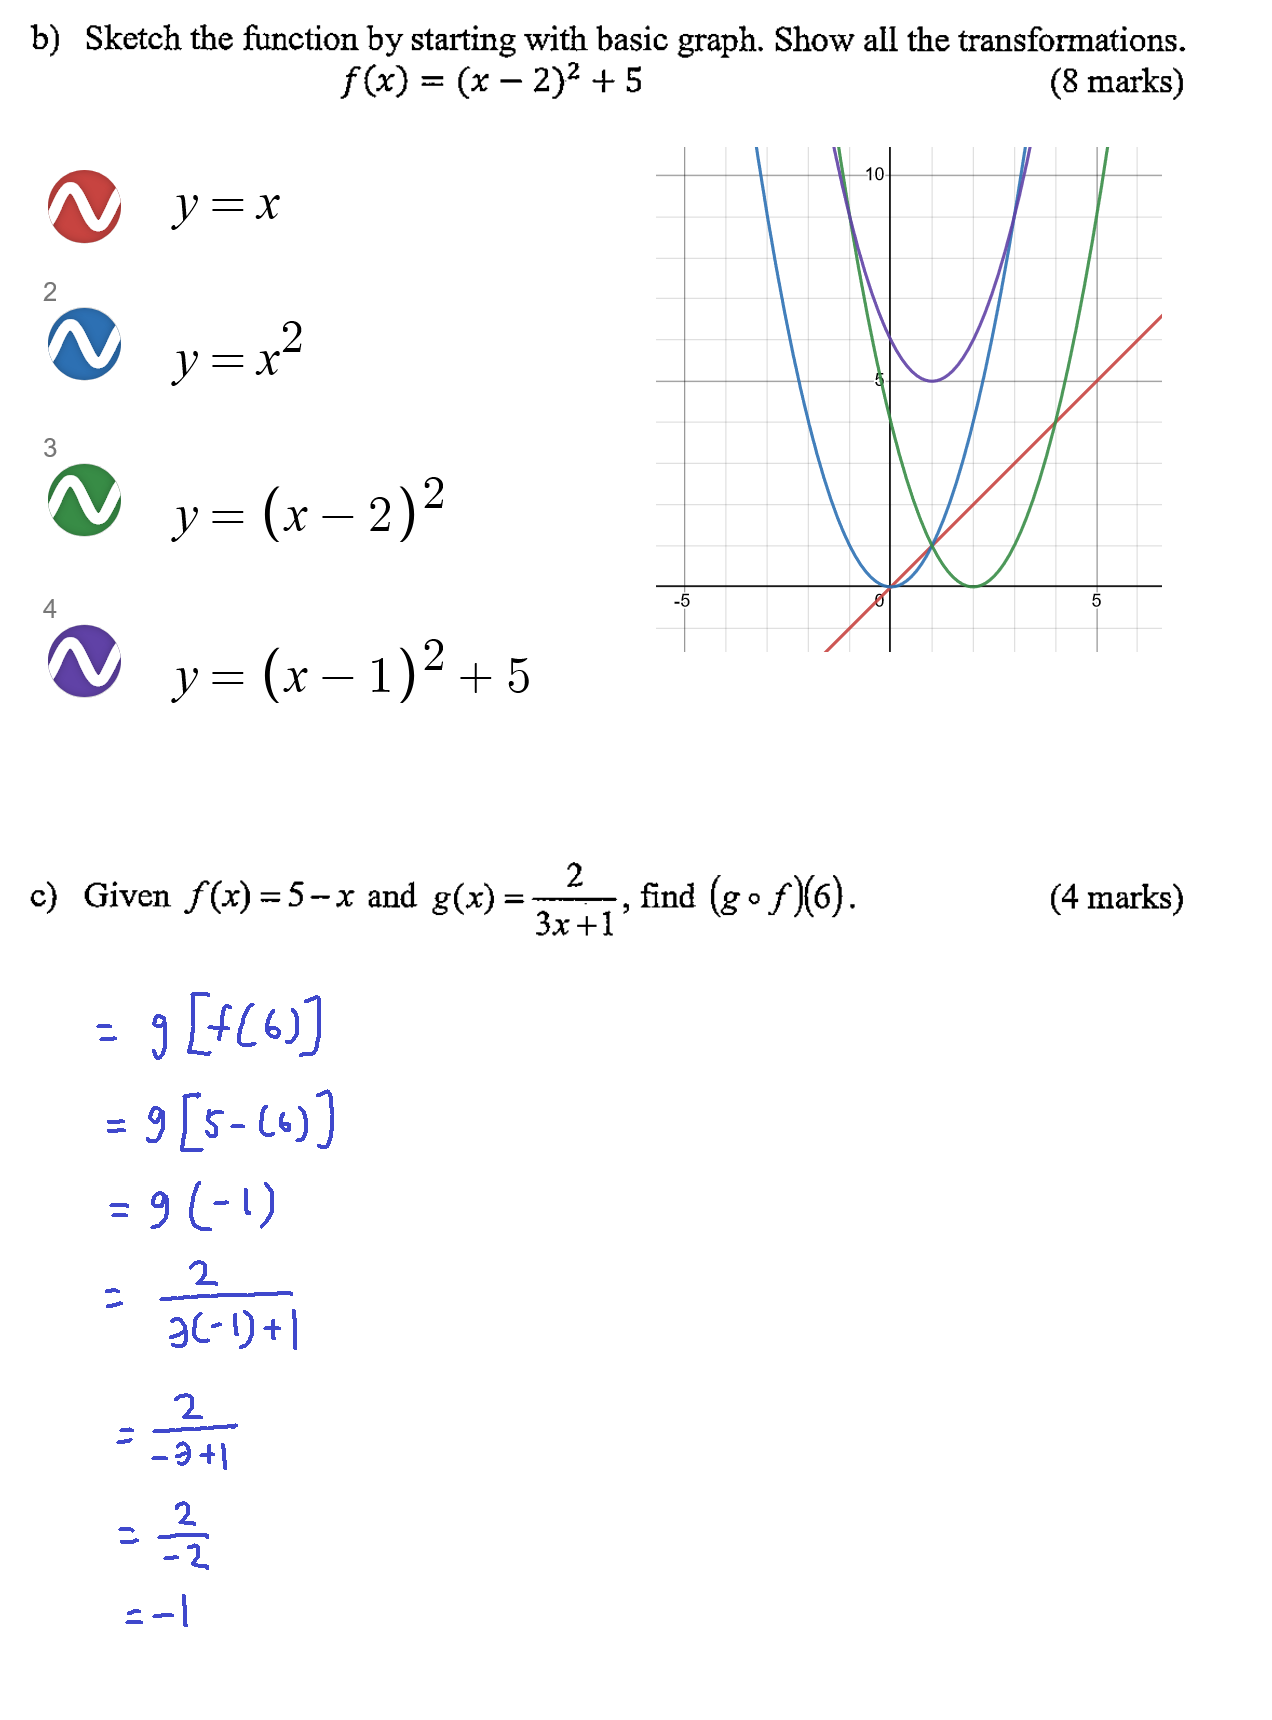 b) Sketch the function by starting with basic graph. Show all the transformations.
f(x) = (x − 2)² + 5 (8 marks)
y = x
2
y = x²
3
y = (x − 2)²
4
y = (x − 1)² + 5
10
5
-5 0 5
c) Given f(x) = 5 − x and g(x) = 2/(3x + 1), find (g ∘ f)(6). (4 marks)
= g[f(6)]
= g[5-(6)]
= g(-1)
= 2/(3(-1)+1)
= 2/(-3+1)
= 2/-2
= -1